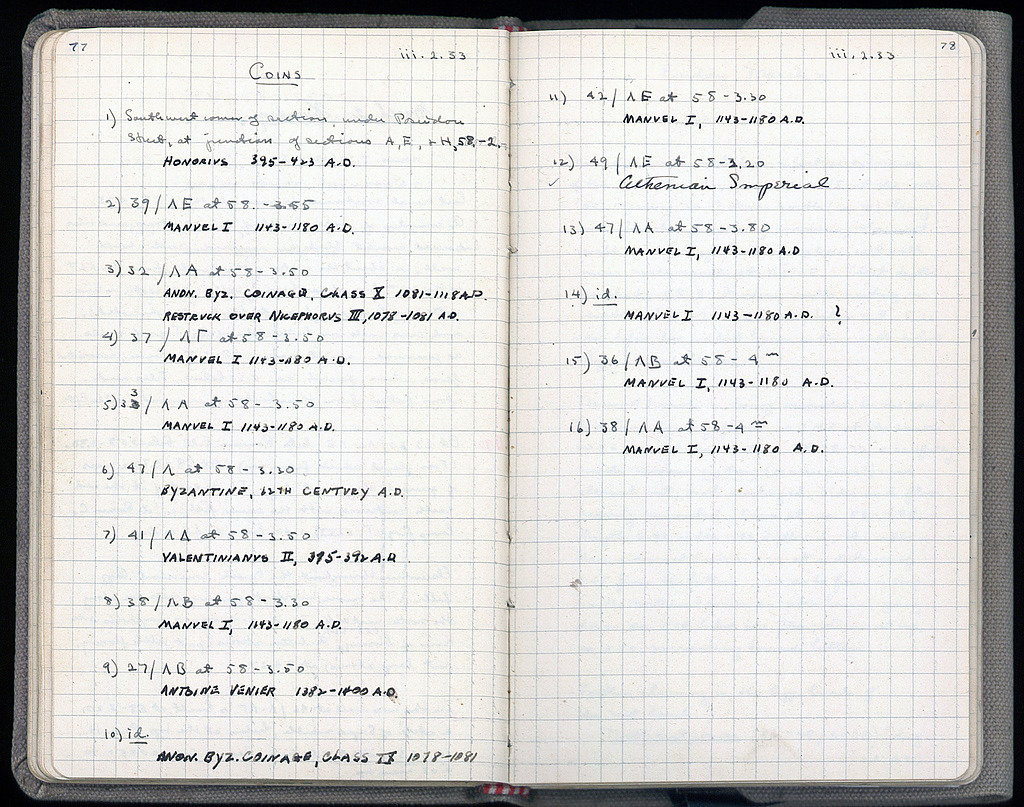 77
iii.2.33
COINS
1) Southwest corner of section, under Poseidon
Street, at junction of sections A, E, + H, 58.-2.
HONORIVS 395-423 A.D.
2) 39/ΛE at 58.-3.55
MANVEL I 1143-1180 A.D.
3) 32/ΛA at 58-3.50
ANON. BYZ. COINAGE, CLASS X 1081-1118 A.D.
RESTRVCK OVER NICEPHORVS III, 1078-1081 A.D.
4) 37/ΛΓ at 58-3.50
MANVEL I 1143-1180 A.D.
5) 33/ΛA at 58-3.50
MANVEL I 1143-1180 A.D.
6) 47/Λ at 58-3.30
BYZANTINE, 12TH CENTVRY A.D.
7) 41/ΛΔ at 58-3.50
VALENTINIANVS II, 375-392 A.D
8) 38/ΛB at 58-3.30
MANVEL I, 1143-1180 A.D.
9) 27/ΛB at 58-3.50
ANTOINE VENIER 1382-1400 A.D.
10) id.
ANON. BYZ. COINAGE, CLASS IX 1078-1081
78
iii.2.33
11) 42/ΛE at 58-3.30
MANVEL I, 1143-1180 A.D.
12) 49/ΛE at 58-3.20
✓ Athenian Imperial
13) 47/ΛA at 58-3.80
MANVEL I, 1143-1180 A.D
14) id.
MANVEL I 1143-1180 A.D. ?
15) 36/ΛB at 58-4m
MANVEL I, 1143-1180 A.D.
16) 38/ΛA at 58-4m
MANVEL I, 1143-1180 A.D.